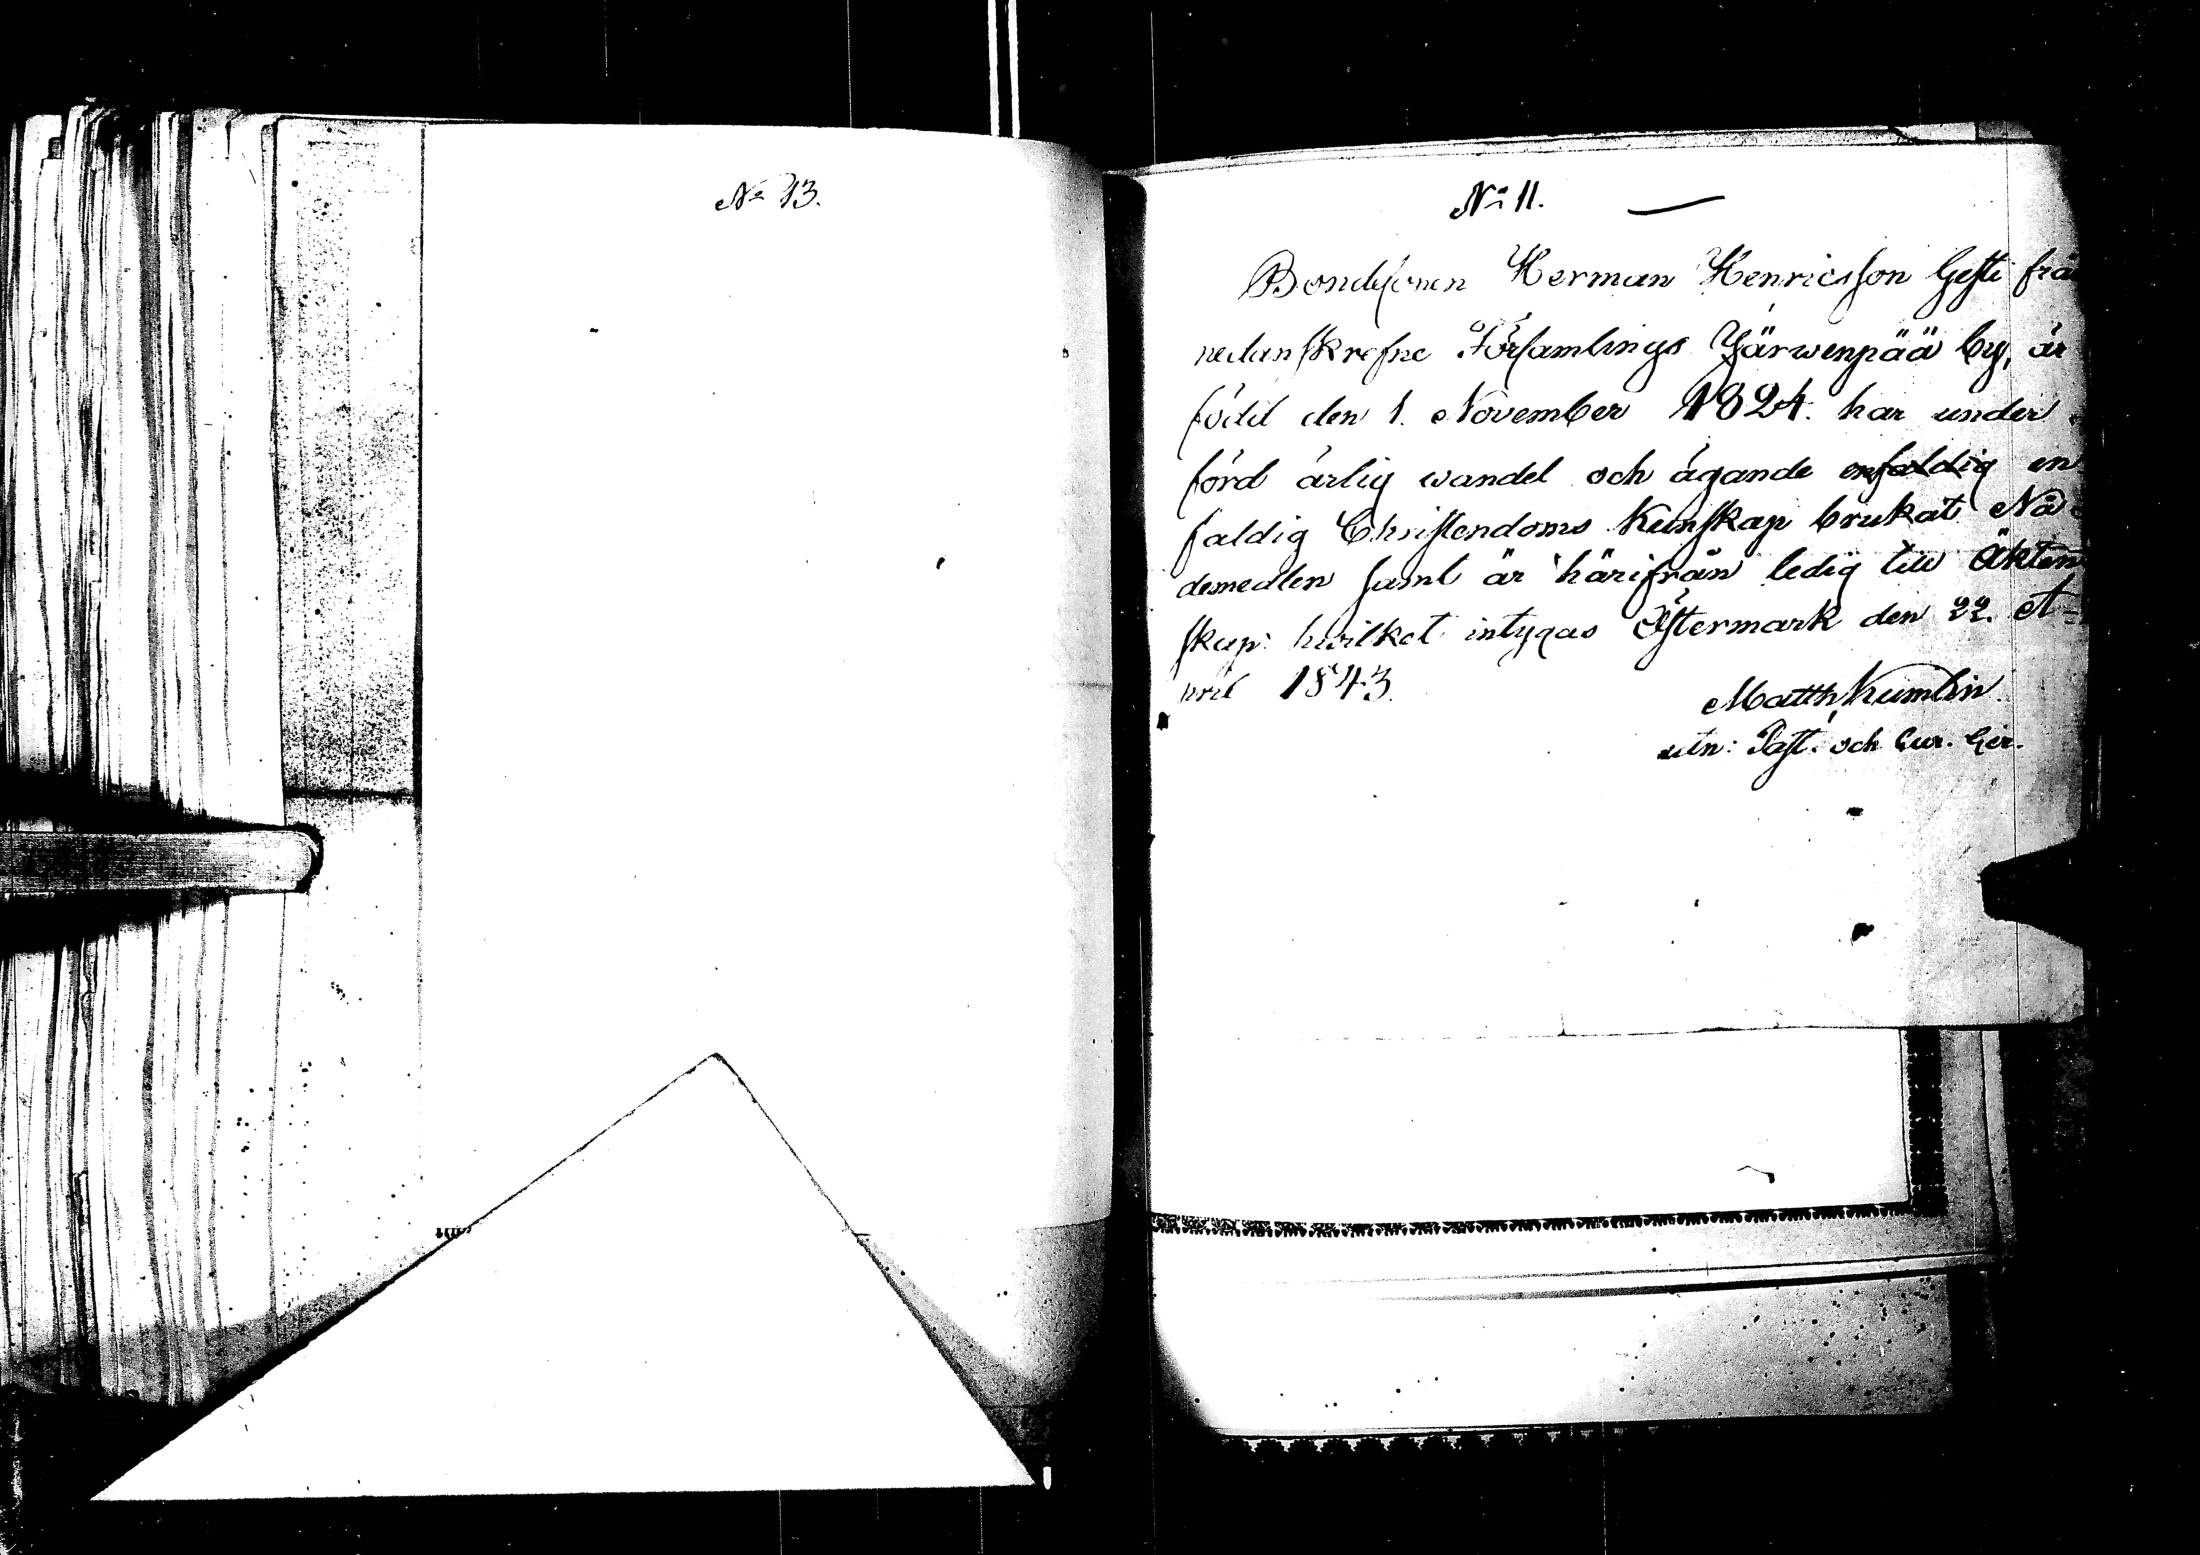 No 13.
No 11.
Bondesonen Herman Henricsson från
nedanskrefne Församlings Järwenpää by, är
född den 1. November 1824. har under
förd ärlig wandel och ägande enfaldig en
faldig Christendoms Kunskap brukat Nå-
demedlen samt är härifrån ledig till Äkten
skap: hwilket intygas Östermark den 22. A=
pril 1843.
Matth. Kumlin
Past. och